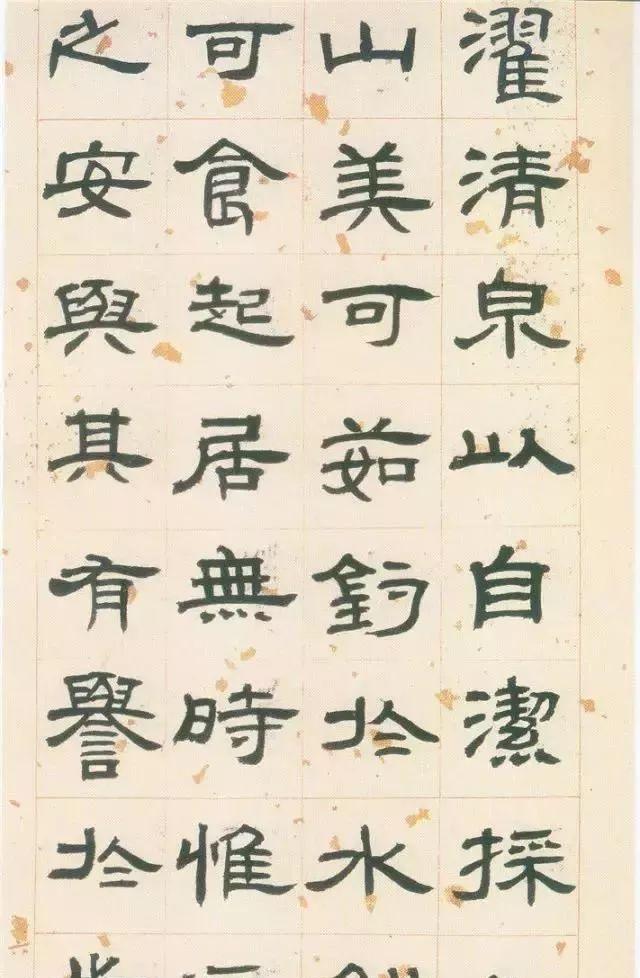 濯清泉以自潔採
山美可茹釣於水
可食起居無時惟
之安與其有譽於